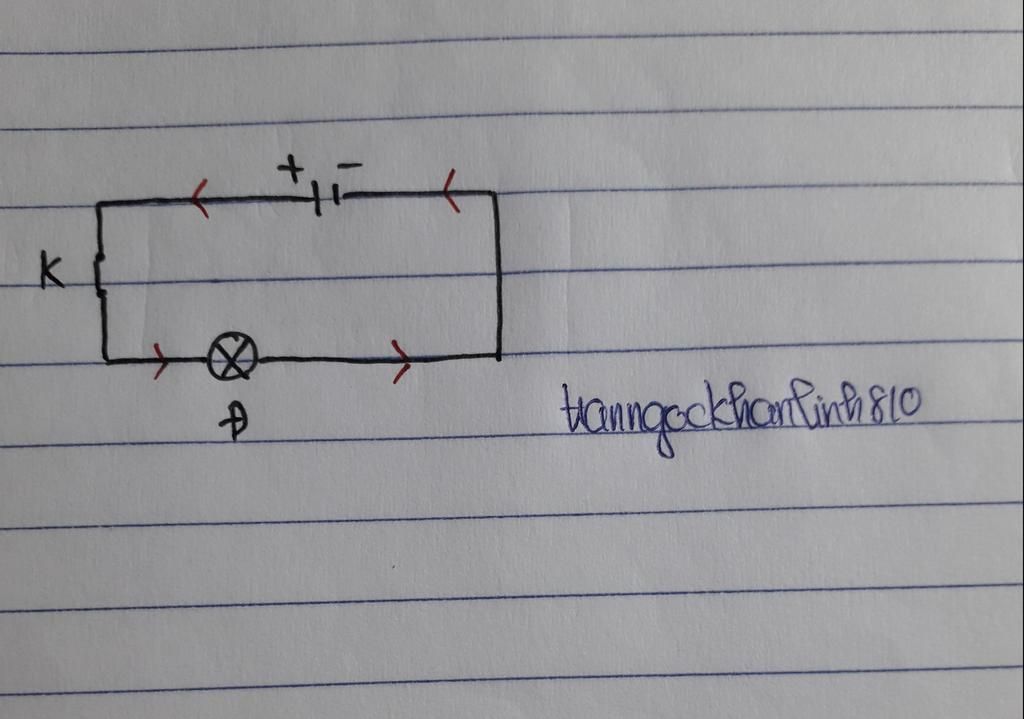 + -
K
Đ
tranngockhanlinh810